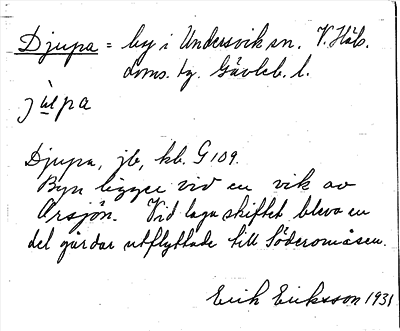 Djupa = by i Undersvik sn. V. Häls.
doms. tg. Gävleb. l.
jʉ̀pa
Djupa, jb, kb. G 109.
Byn ligger vid en vik av
Orsjön. Vid laga skiftet bleva en
del gårdar utflyttade till Söderomåsen.
Erik Eriksson 1931